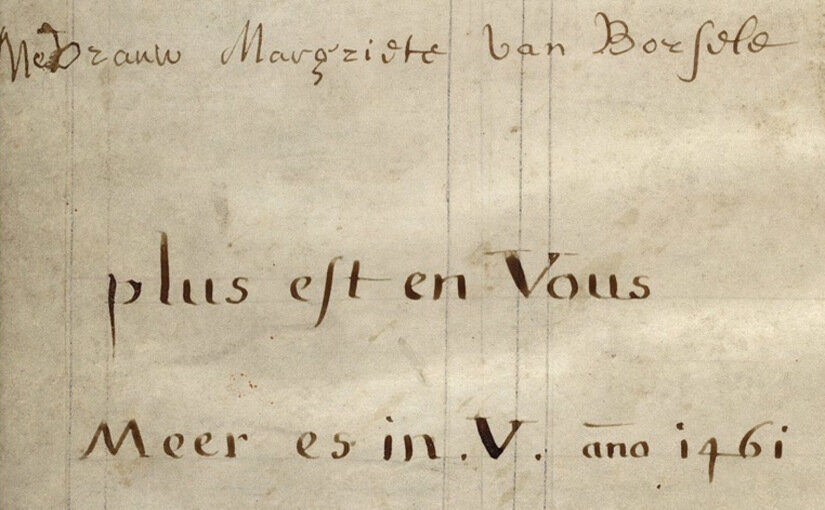 Mevrauw Margriete van Borsele
plus est en Vous
Meer es in .V. año 1461